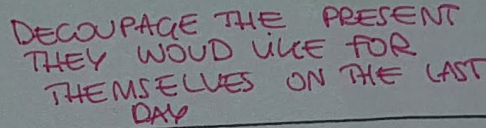 DECOUPAGE THE PRESENT
THEY WOUD LIKE FOR
THEMSELVES ON THE LAST
DAY